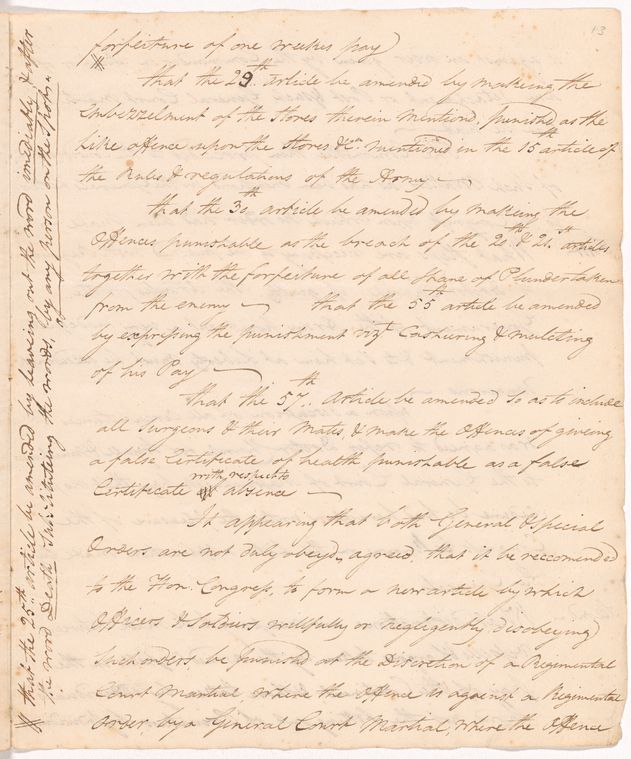 13
forfeiture of one weekes pay
that the 29th. article be amended by makeing the
Imbezzelment of the Stores therein mentiond, punishd as the
Like offence upon the Stores &ca. mentioned in the 15th article of
the Rules & regulations of the Army —
that the 30th article be amended by making the
Offences punishable as the breach of the 20th & 21st articles
together with the forfeiture of all share of Plunder taken
from the enemy — that the 55th article be amended
by expressing the punishment vizt Cashiering & mulcting
of his Pay —
That the 57th. Article be amended so as to include
all Surgeons & their Mates, & make the Offences of giveing
a false Certificate of health punishable as a false
Certificate with respect to absence —
It appearing that both General & Special
Orders are not duly obeyd, agreed, that it be reccomended
to the Hon. Congress, to form a new article by which
Officers & Soldiers willfully or negligently disobeying
such orders be punished at the Discretion of a Regimental
Court Martial, where the offence is against a Regimental
order, by a General Court Martial, where the Offence
that the 25th. article be amended by leaveing out the word imediately & after
the word Death Substituting the words, or by any person on the Spot.